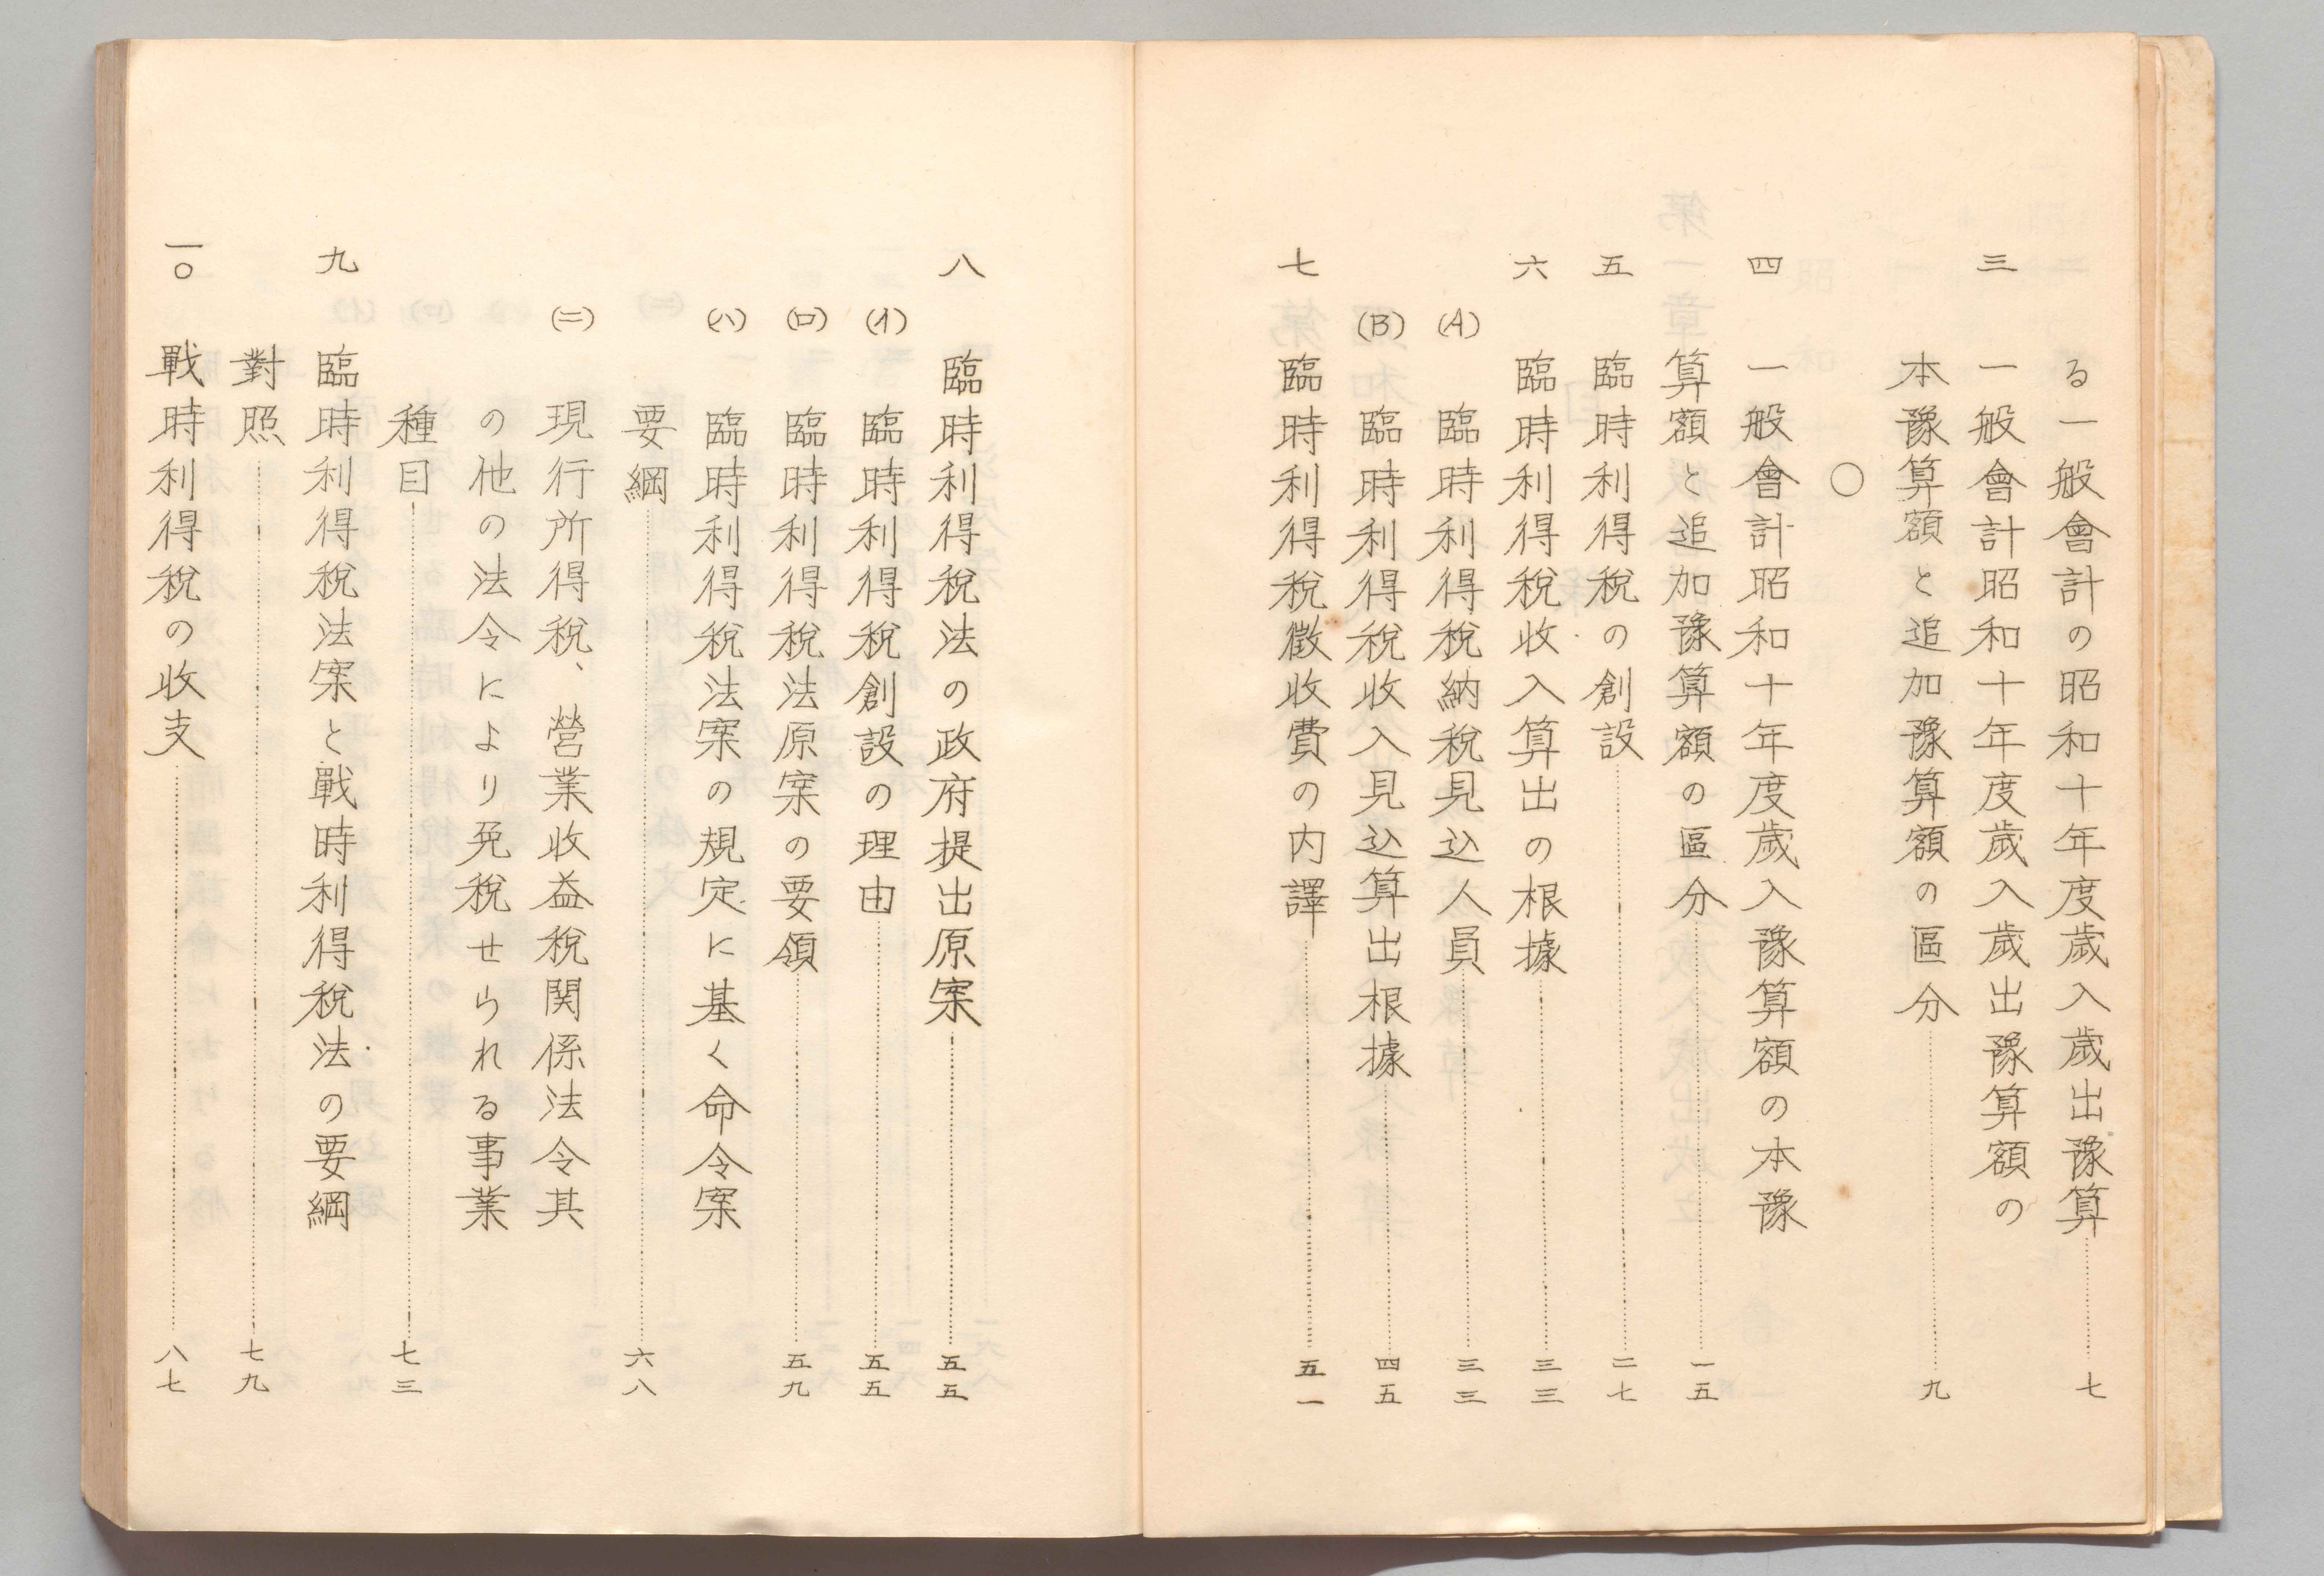 る一般會計の昭和十年度歲入歲出豫算……七
三 一般會計昭和十年度歲入歲出豫算額の
本豫算額と追加豫算額の區分……九
○
四 一般會計昭和十年度歲入豫算額の本豫
算額と追加豫算額の區分……一五
五 臨時利得税の創設……二七
六 臨時利得税收入算出の根據……三三
(A) 臨時利得税納税見込人員……三三
(B) 臨時利得税收入見込算出根據……四五
七 臨時利得税徵收費の内譯……五一
八 臨時利得税法の政府提出原案……五五
(イ) 臨時利得税創設の理由……五五
(ロ) 臨時利得税法原案の要領……五九
(ハ) 臨時利得税法案の規定に基く命令案
要綱……六八
(ニ) 現行所得税、營業收益税関係法令其
の他の法令により免税せられる事業
種目……七三
九 臨時利得税法案と戰時利得税法の要綱
對照……七九
一〇 戰時利得税の收支……八七